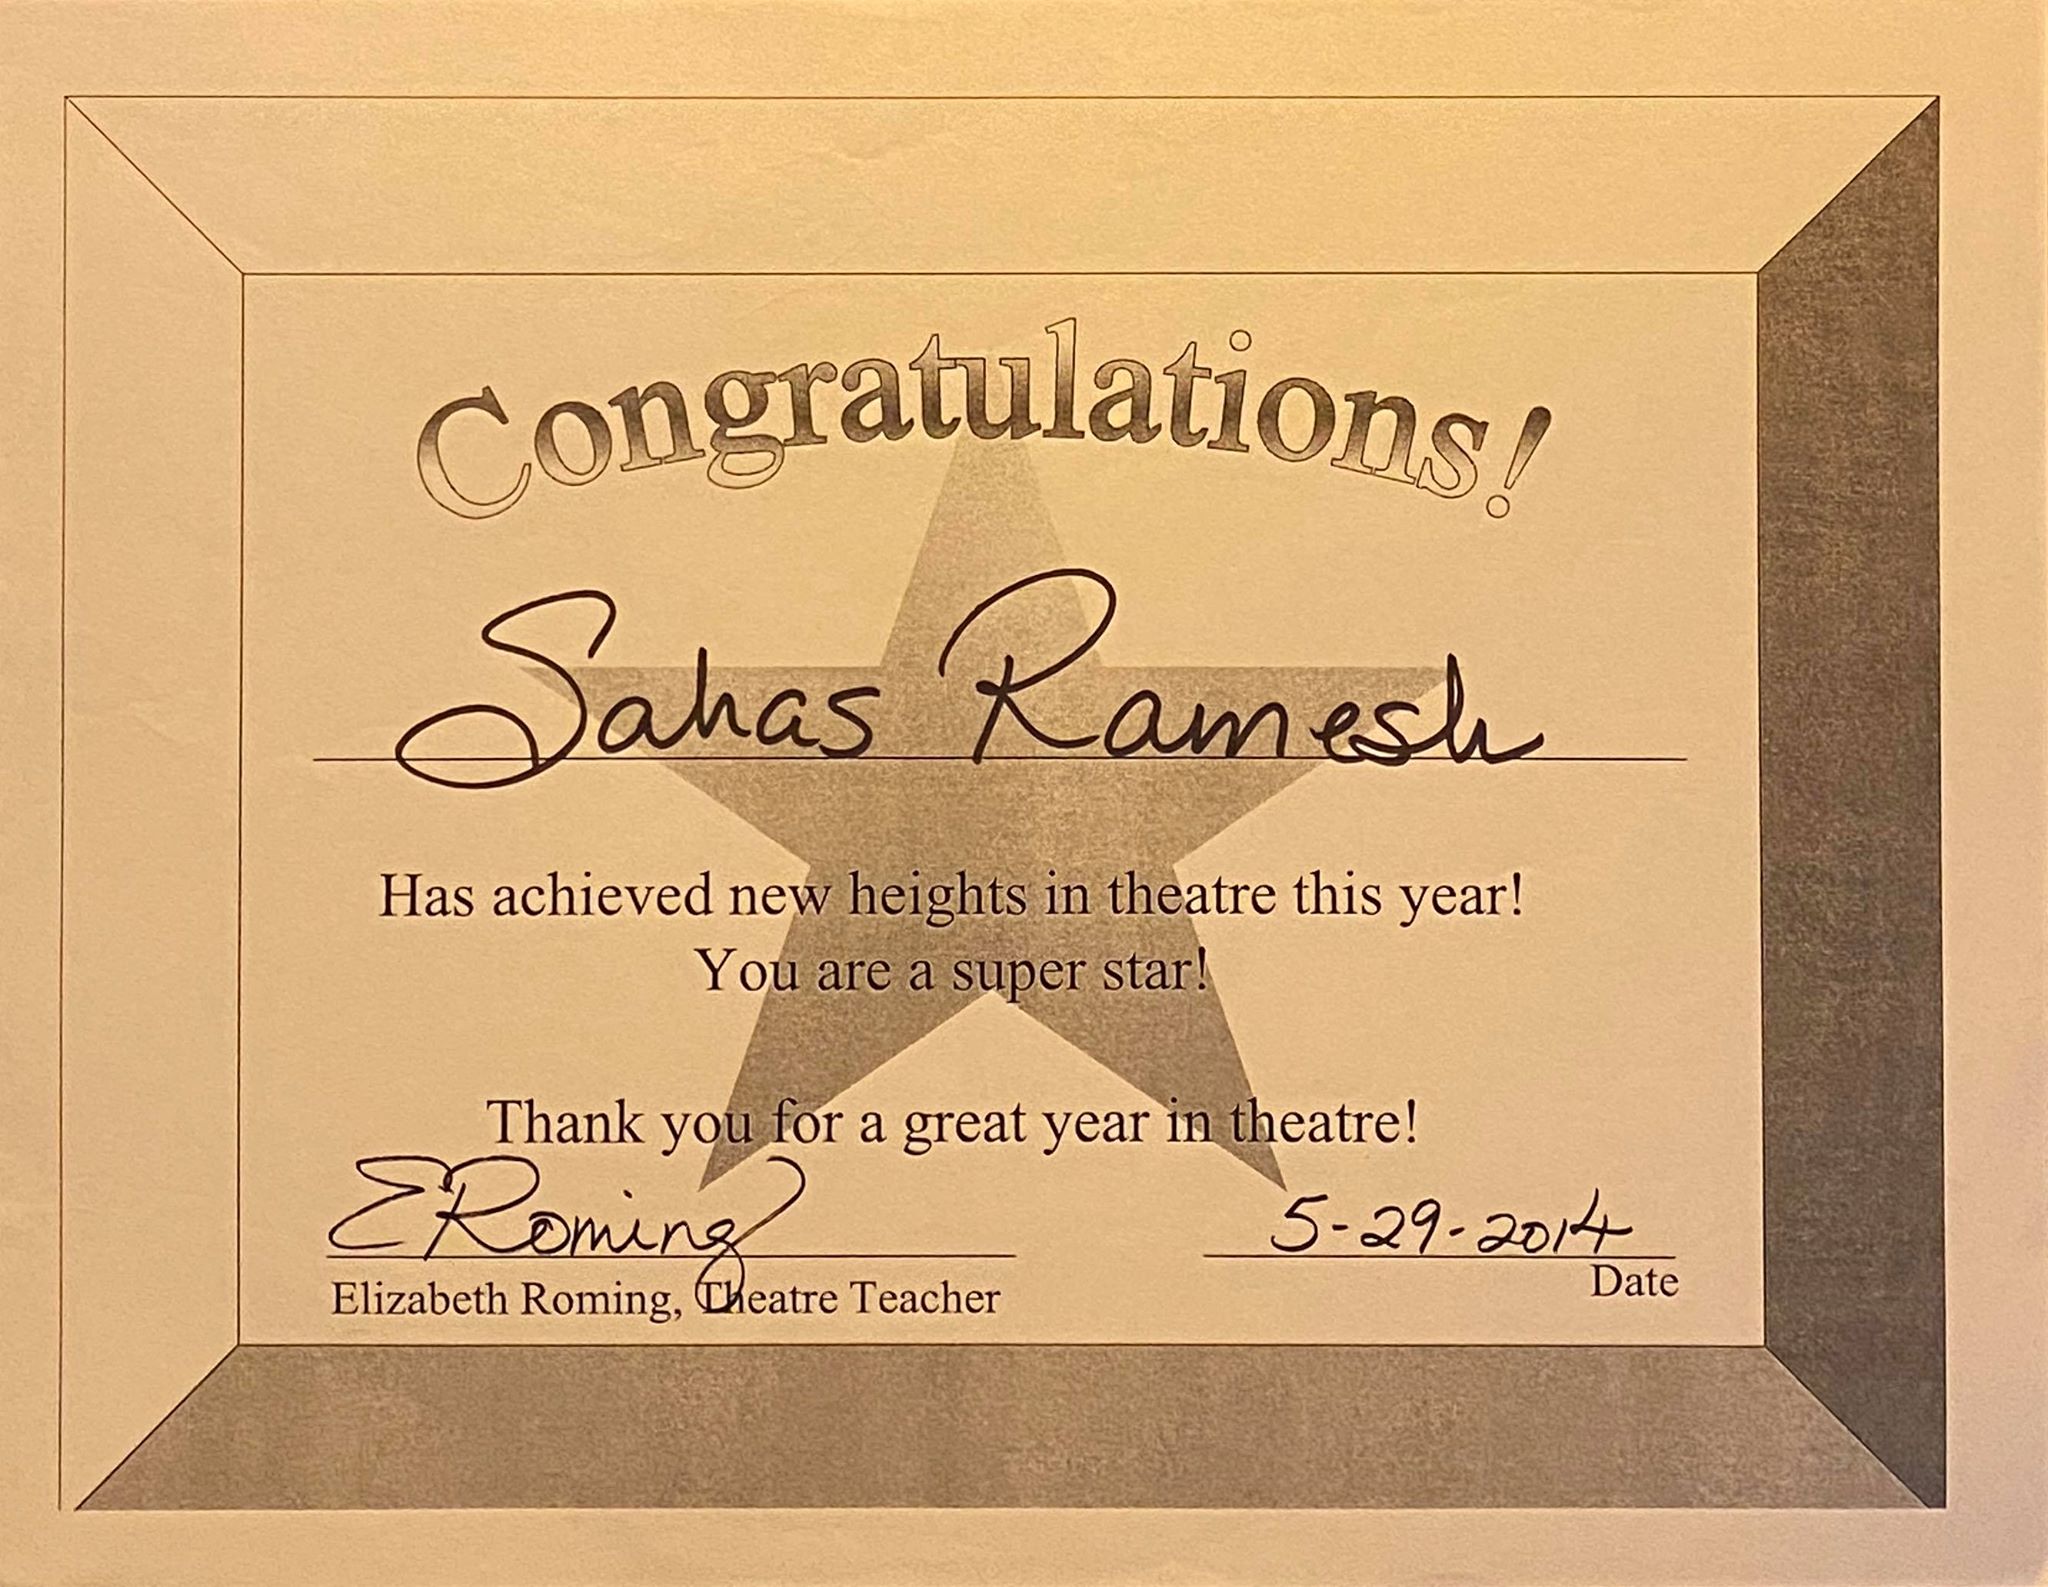 Congratulations!
Sahas Ramesh
Has achieved new heights in theatre this year!
You are a super star!
Thank you for a great year in theatre!
ERoming 5-29-2014
Elizabeth Roming, Theatre Teacher Date